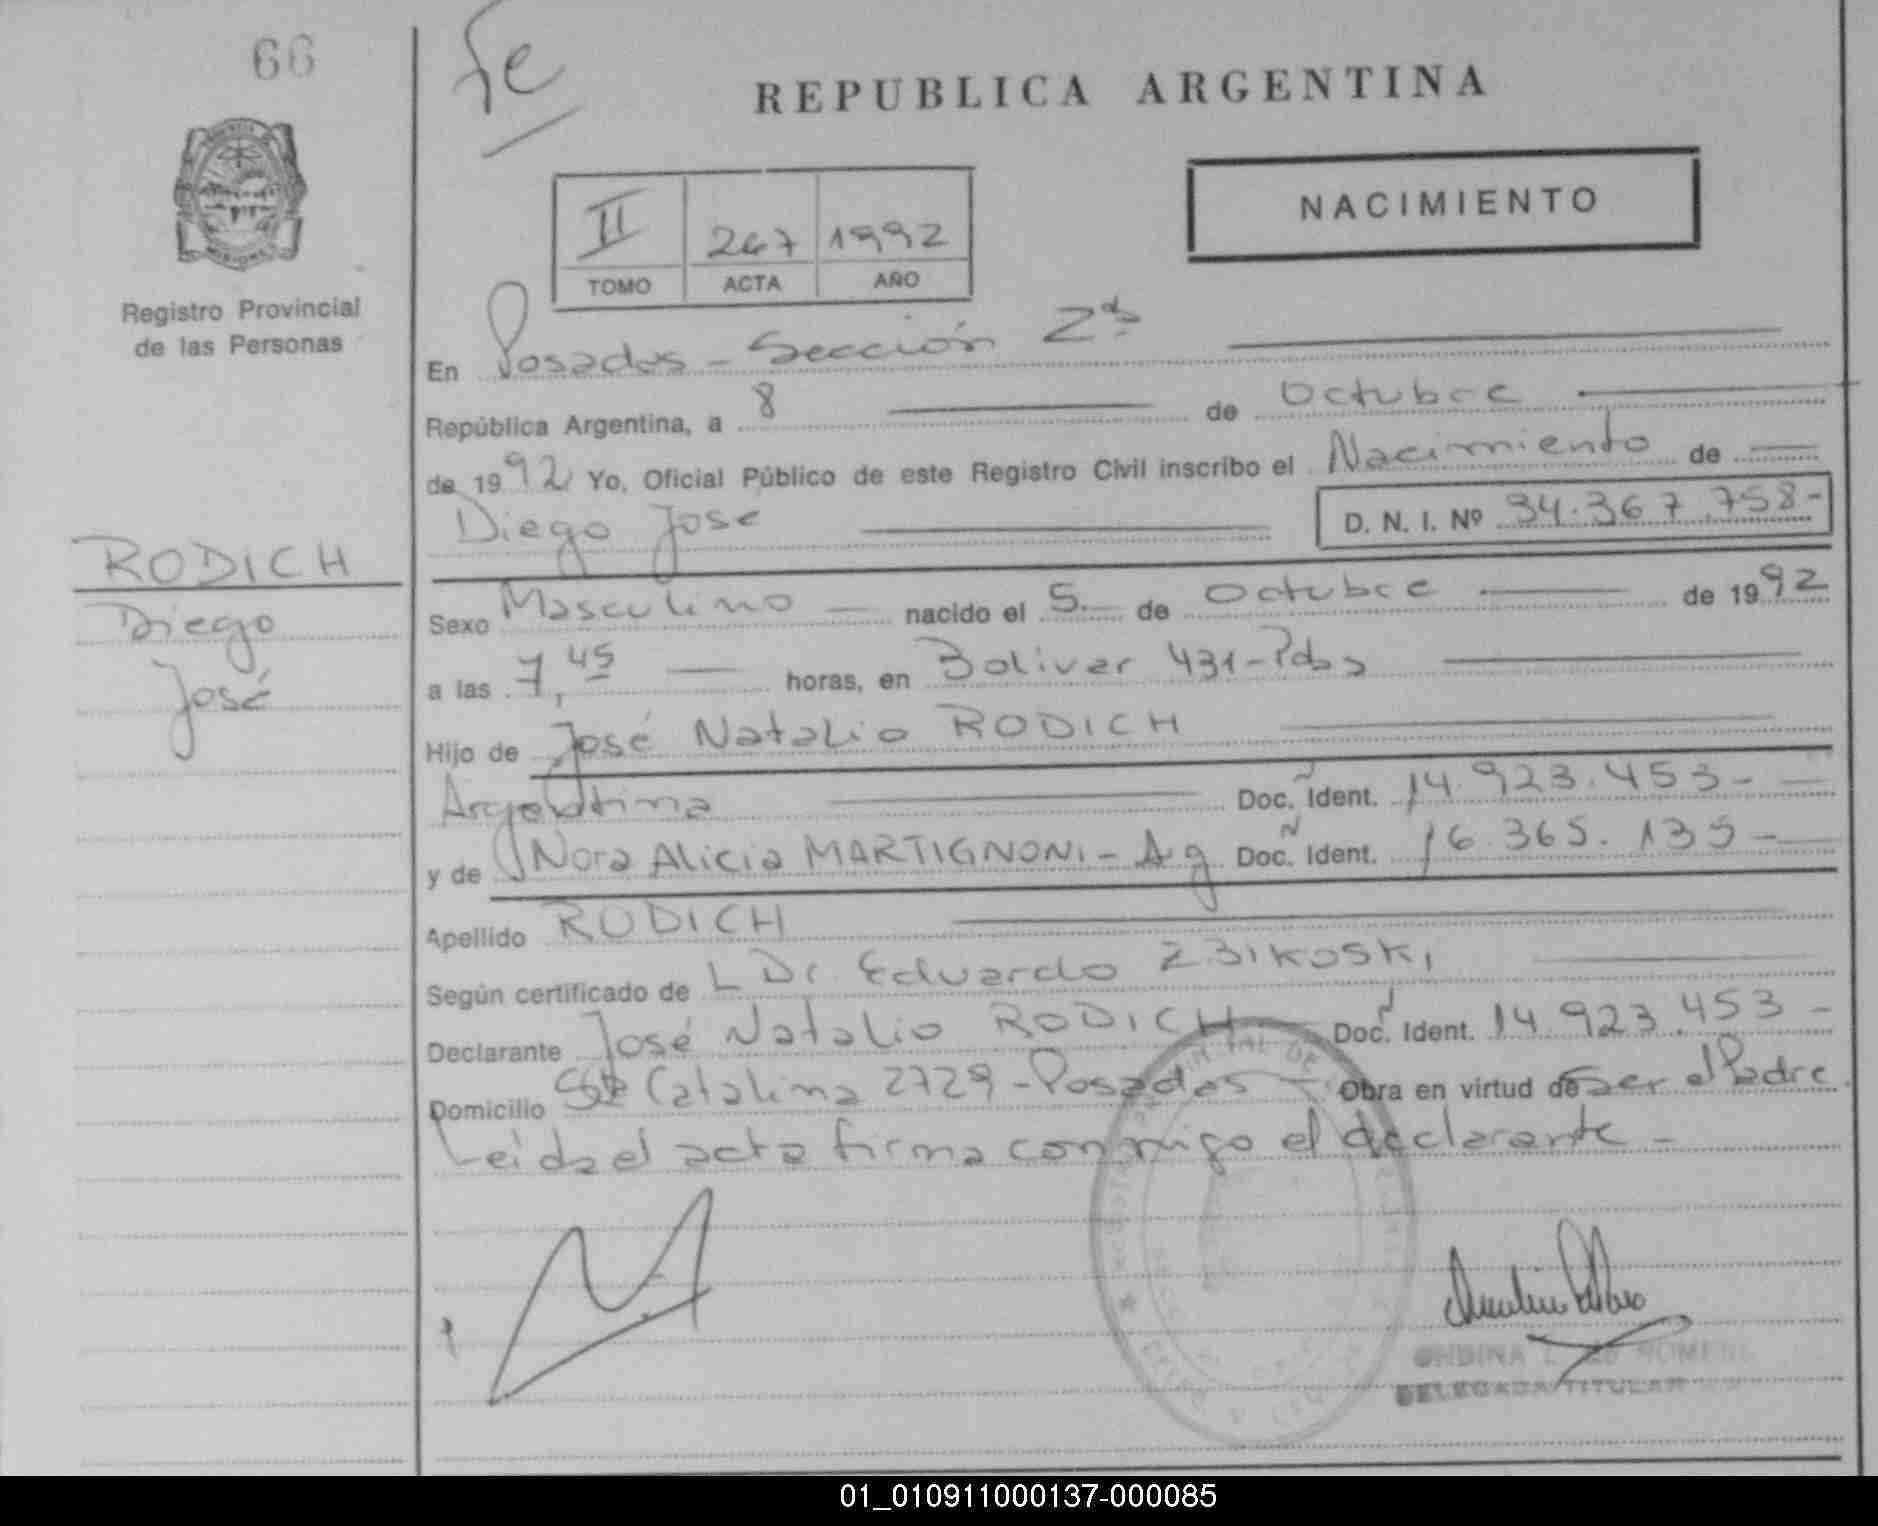 66
Fe
REPUBLICA ARGENTINA
NACIMIENTO
II 267 1992
TOMO ACTA AÑO
Registro Provincial
de las Personas
En Posadas - Sección 2da
República Argentina, a 8 de Octubre
de 1992 Yo, Oficial Público de este Registro Civil inscribo el Nacimiento de
Diego Jose D. N. I. Nº 34.367.758-
RODICH
Diego
José
Sexo Masculino nacido el 5 de Octubre de 1992
a las 7,45 horas, en Bolivar 431-Pdas
Hijo de José Natalio RODICH
Argentina Doc. Ident. 14.923.453-
y de Nora Alicia MARTIGNONI - Arg Doc. Ident. 16.365.135-
Apellido RODICH
Según certificado de L Dr. Eduardo ZBIKOSKI
Declarante José Natalio RODICH Doc. Ident. 14.923.453-
Domicilio Sta Catalina 2729 - Posadas - Obra en virtud de Ser el Padre.
Leida el acta firma conmigo el declarante -
ONDINA
DELEGADA TITULAR
01_010911000137-000085